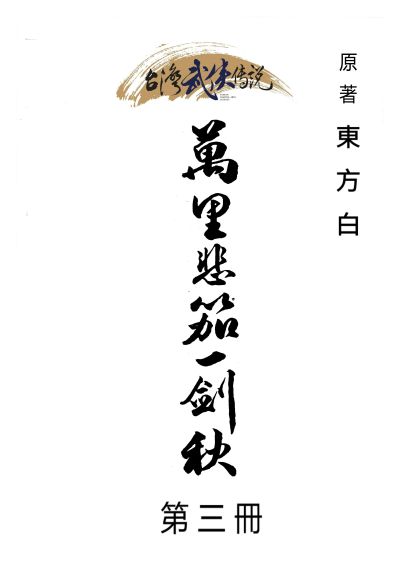 原著 東方白
台灣武俠传说
萬里悲笳一劍秋
第三冊